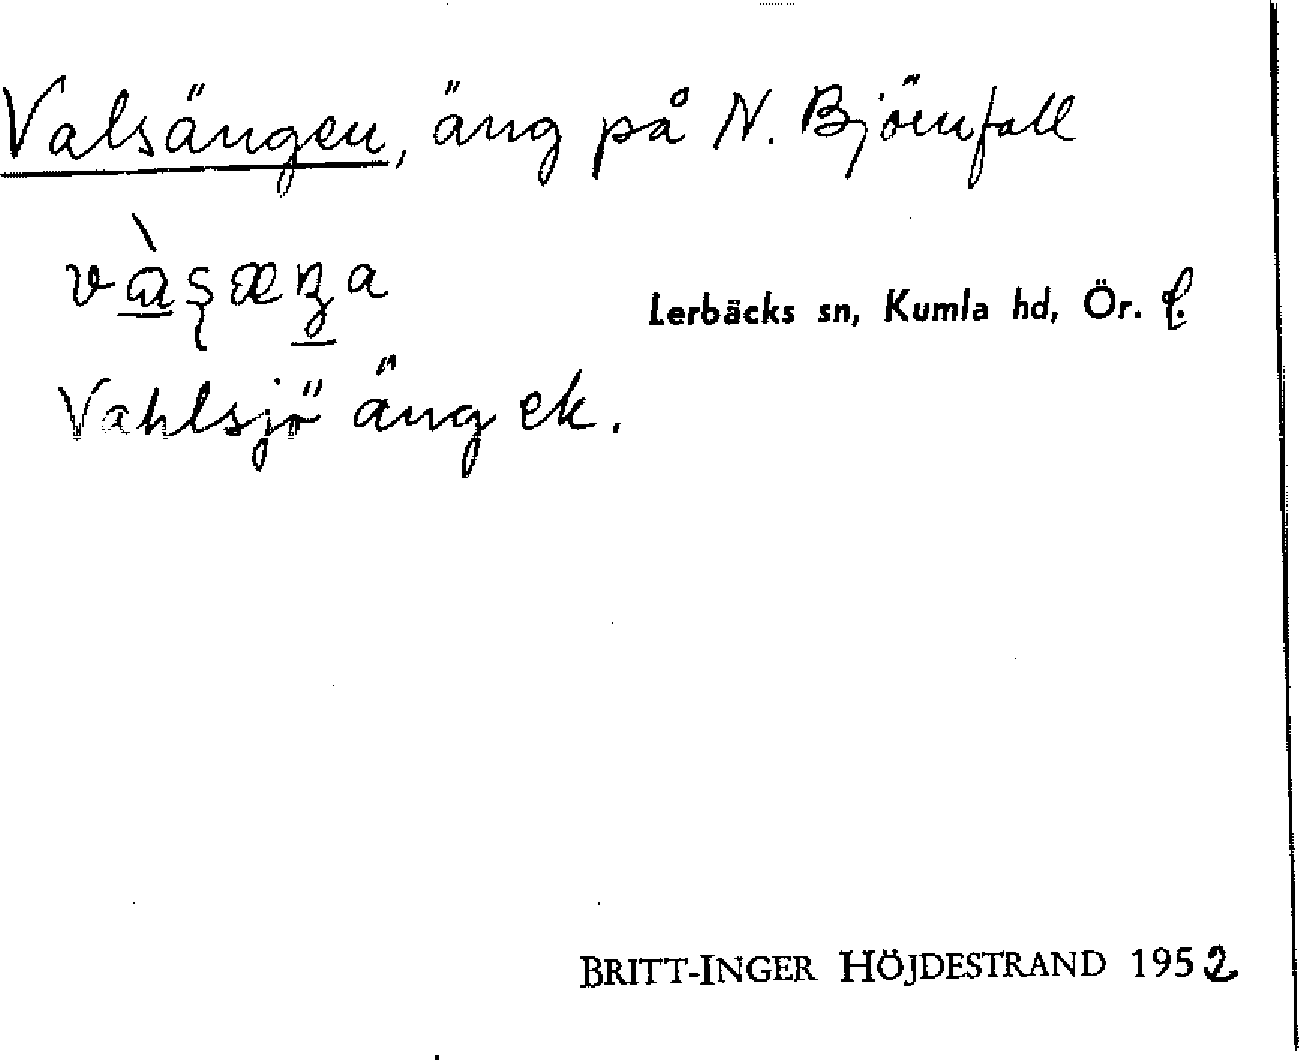 Valsängen, äng på N. Björnfall
và̱ʂæŋa
Lerbäcks sn, Kumla hd, Ör. l.
Vahlsjö äng ek.
BRITT-INGER HÖJDESTRAND 1952